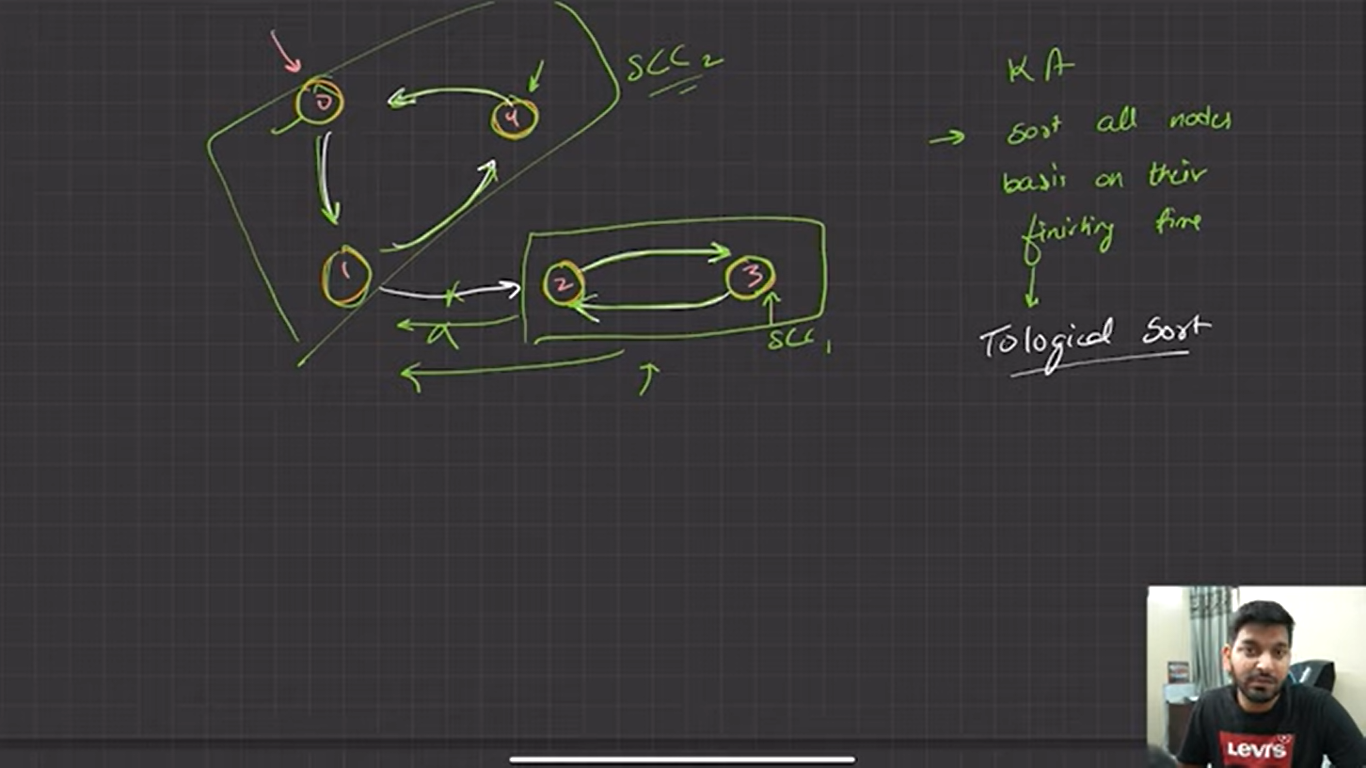 SCC2
0
4
1
2
3
a
SCC1
KA
→ Sort all nodes
basis on their
finishing time
Tological Sort
LEVI'S